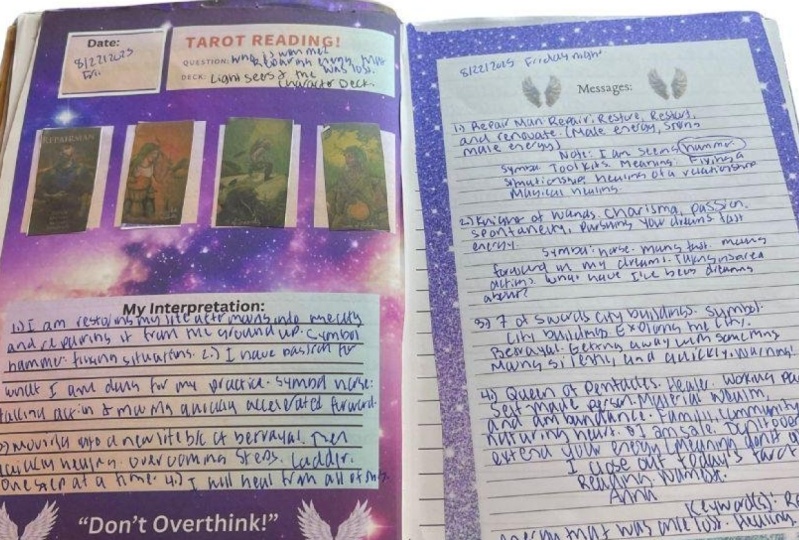 Date:
8/22/2025
Fri
TAROT READING!
QUESTION: energy that
was lost.
DECK: Light seers & the
character Deck.
REPAIRMAN
My Interpretation:
1.) I am restoring my life after moving into the city
and repairing it from the ground up. Symbol
hammer: fixing situations. 2.) I have passion for
what I am doing for my practice. Symbol horse:
taking action & moving quickly accelerated forward.
moving into a new life bc of betrayal. Then
quickly healing. overcoming steps. Ladder:
one step at a time. 4.) I will heal from all of this.
"Don't Overthink!"
8/22/2025 Friday night
Messages:
1.) Repair Man Repair, Restore, Restart,
and renovate. (Male energy, strong
male energy)
Note: I am seeing hammer
Symbol Toolkits. Meaning: Fixing a
situationship, healing of a relationship
Magical healing.
2.) Knight of Wands. Charisma, passion,
spontaneity, pursuing your dreams fast
energy.
Symbol: horse. moving fast. moving
forward in my dreams. Taking inspired
action. what have I've been dreaming
about?
3) 7 of Swords city buildings. Symbol:
City buildings. Exploring the city.
Betrayal. Getting away with something
Moving silently and quickly. Warning!
4.) Queen of Pentacles. Healer. Working
Self made person. Material wealth,
and am abundance. Family, Community
nurturing heart. I am safe. Don't over
extend your energy (meaning don't
I close out today's tarot
Reading. Namaste.
Anna
Keyword(s):
energy that was once lost. Healing.